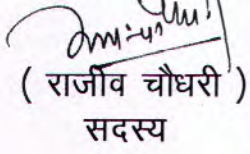 ( राजीव चौधरी )
सदस्य